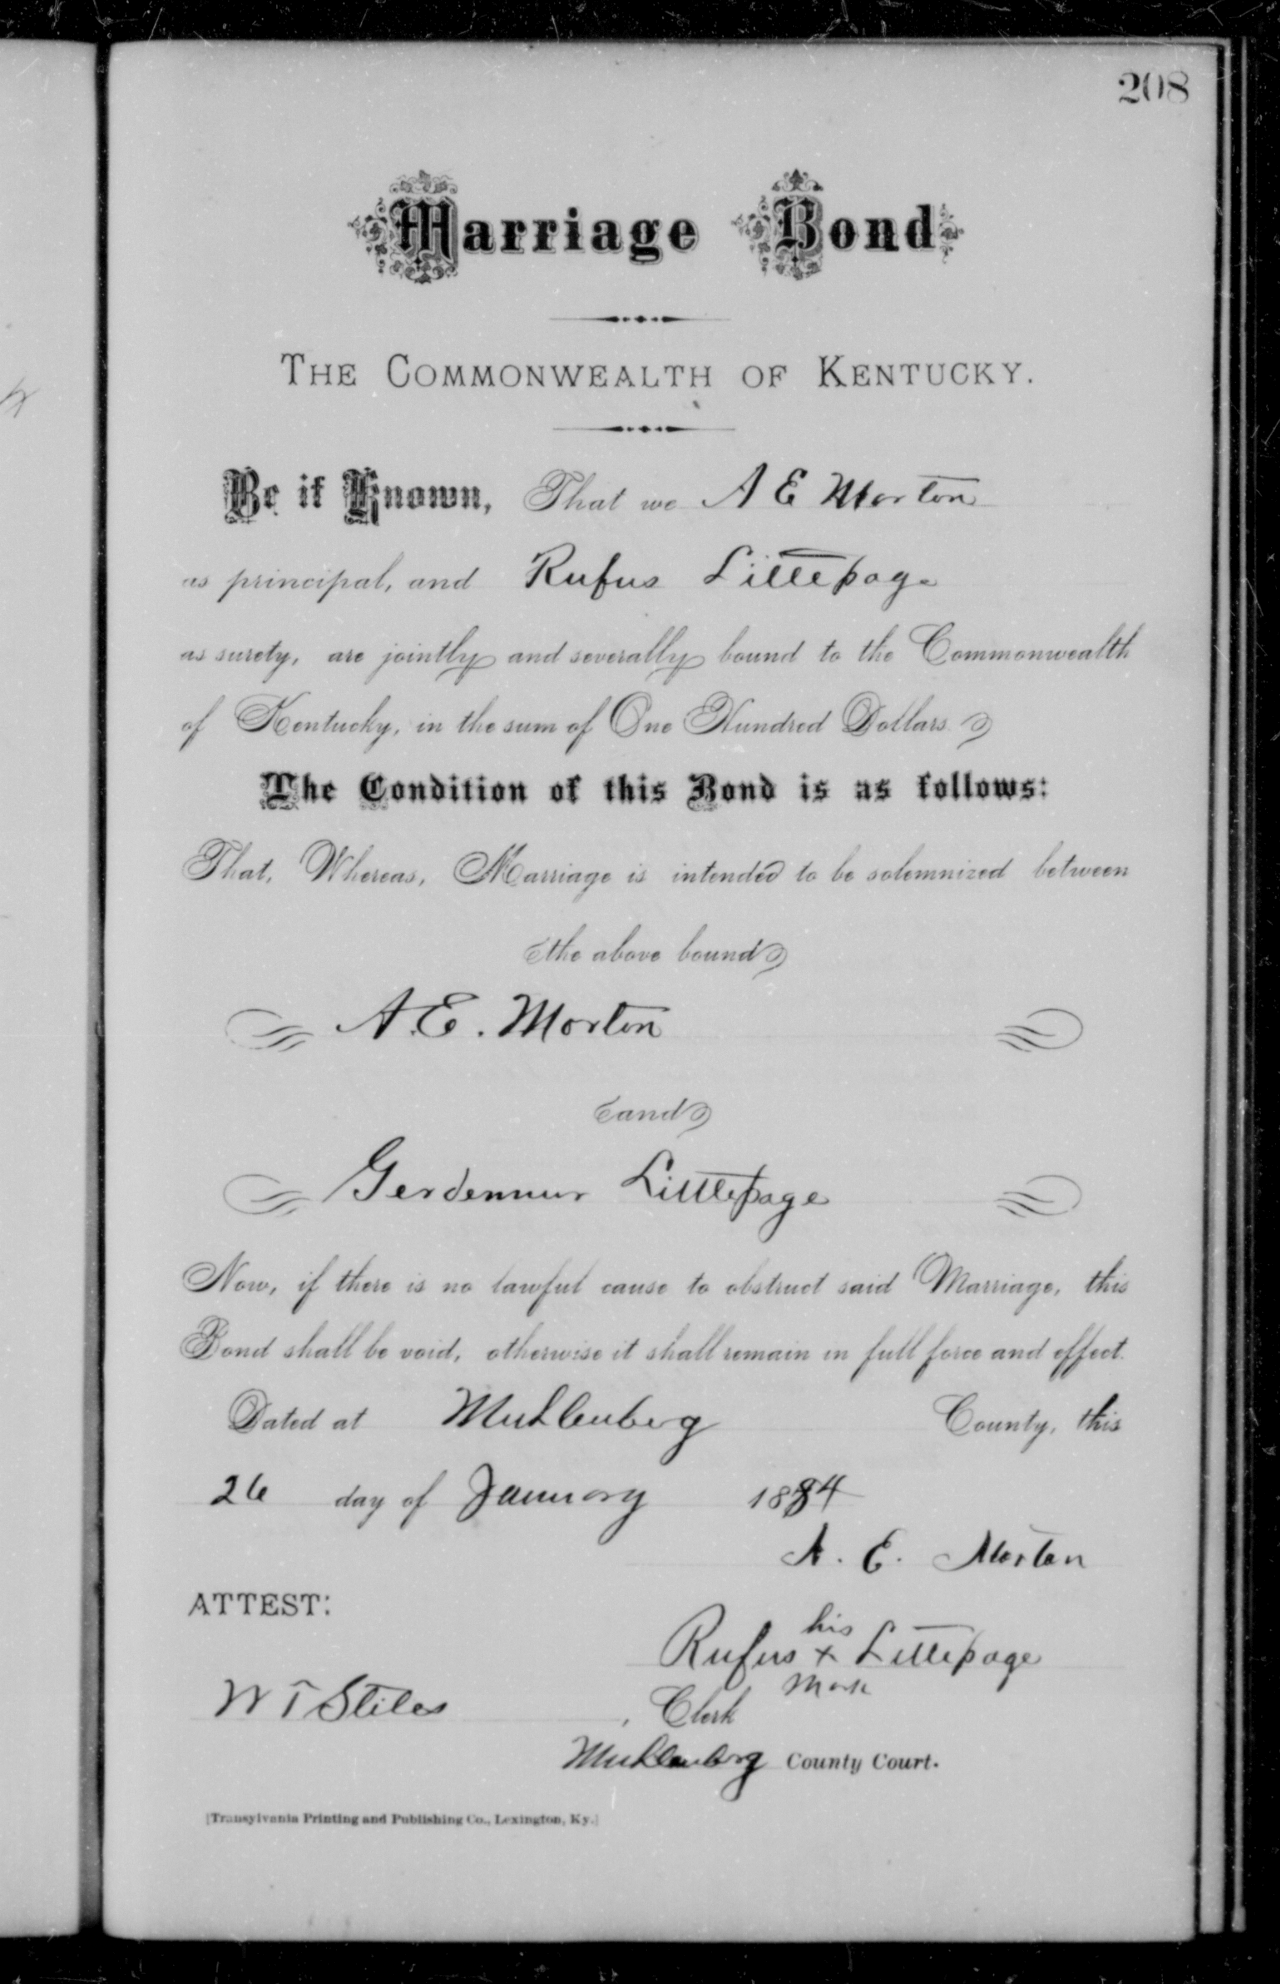 208
Marriage Bond
THE COMMONWEALTH OF KENTUCKY.
Be it Known, That we A E Morton
as principal, and Rufus Littlepage
as surety, are jointly and severally bound to the Commonwealth
of Kentucky, in the sum of One Hundred Dollars.
The Condition of this Bond is as follows:
That, Whereas, Marriage is intended to be solemnized between
the above bound
A. E. Morton
and
Littlepage
Now, if there is no lawful cause to obstruct said Marriage, this
Bond shall be void, otherwise it shall remain in full force and effect.
Dated at Muhlenberg County, this
26 day of January 1884
A. E. Morton
ATTEST:
his
Rufus x Littlepage
mark
W T Stiles, Clerk
Muhlenberg County Court.
[Transylvania Printing and Publishing Co., Lexington, Ky.]